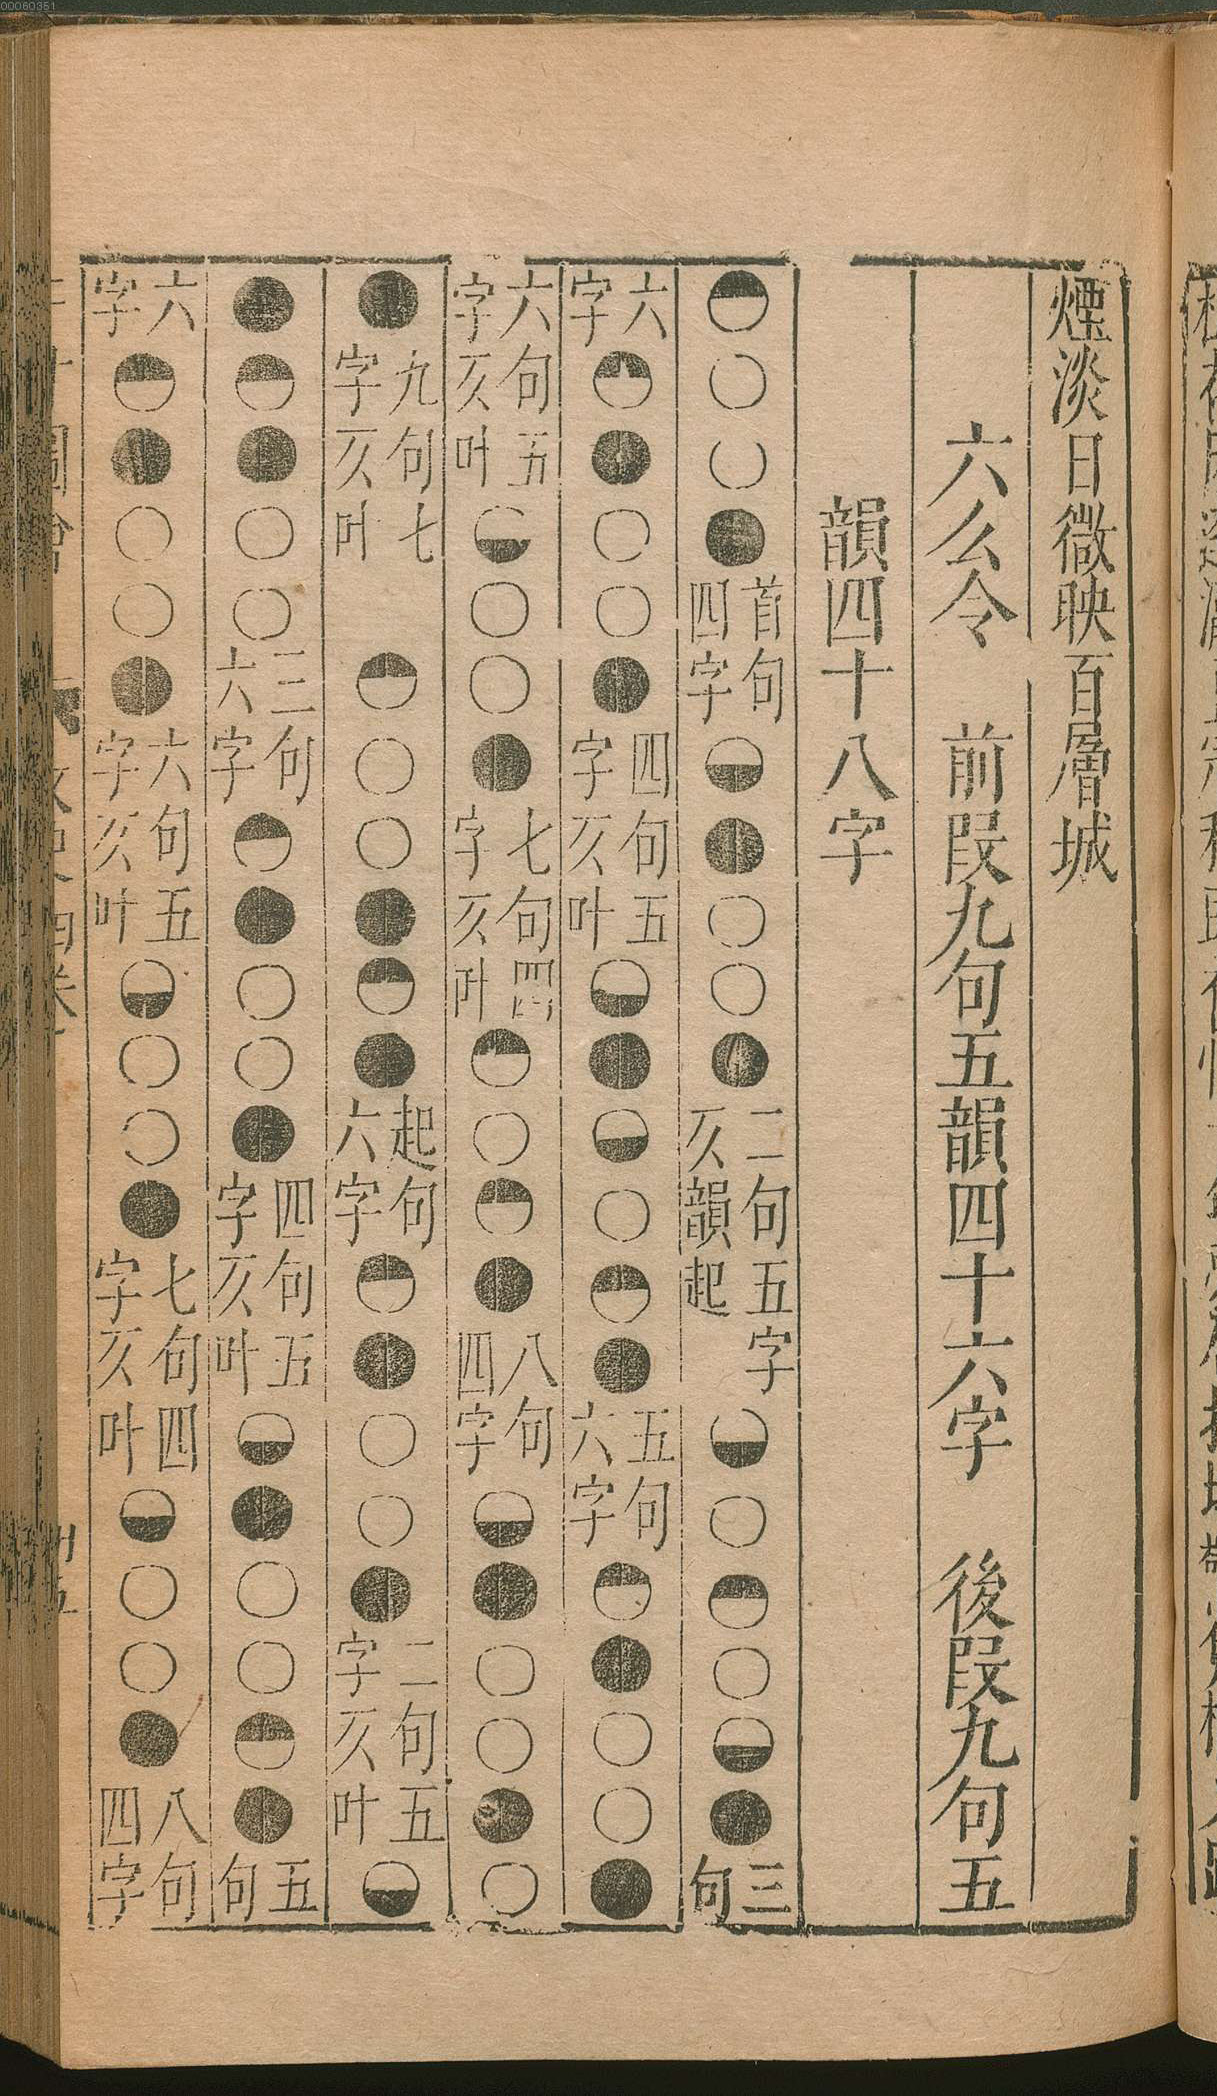 00060351
煙淡日微映百層城
六么令　前段九句五韻四十六字　後段九句五
韻四十八字
首句四字　二句五字仄韻起　三句
六字　四句五字仄叶　五句六字
六句五字仄叶　七句四字仄叶　八句四字
九句七字仄叶　起句六字　二句五字仄叶
三句六字　四句五字仄叶　五句
六字　六句五字仄叶　七句四字仄叶　八句四字